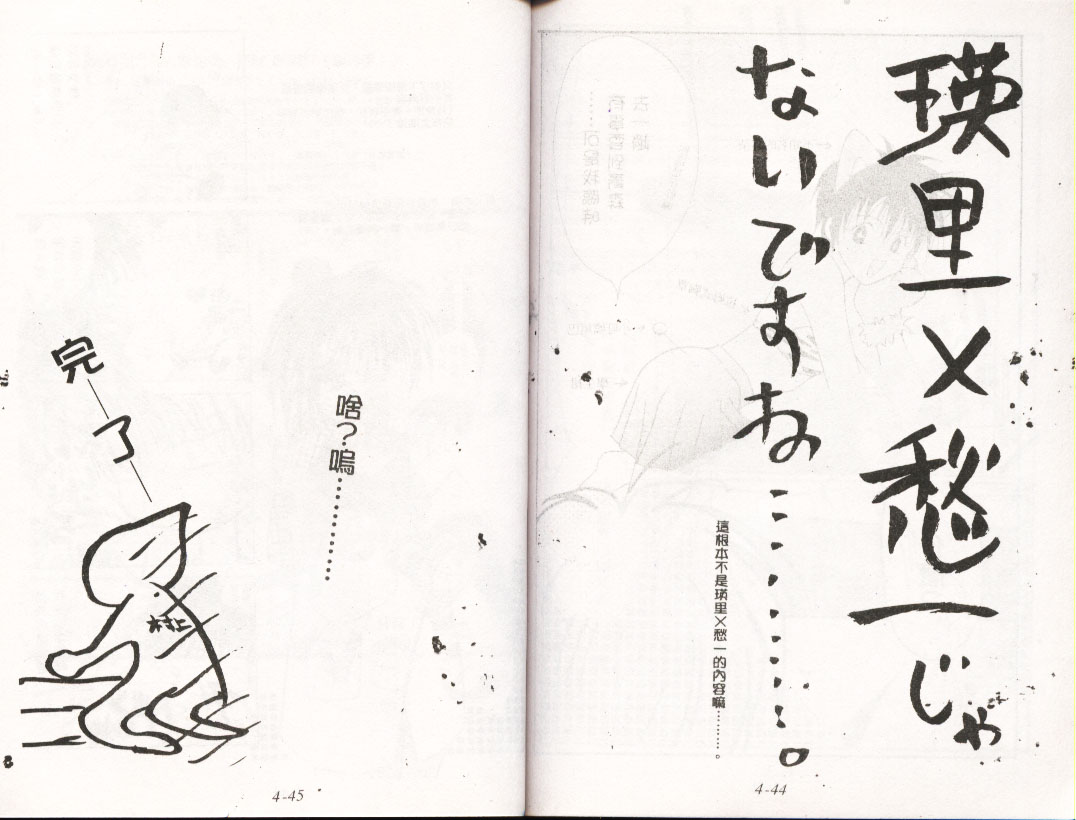 瑛里×愁一じゃ
ないですね…………。
這根本不是瑛里×愁一的內容嘛………。
4-44
啥？嗚…………
完
了
村上
4-45